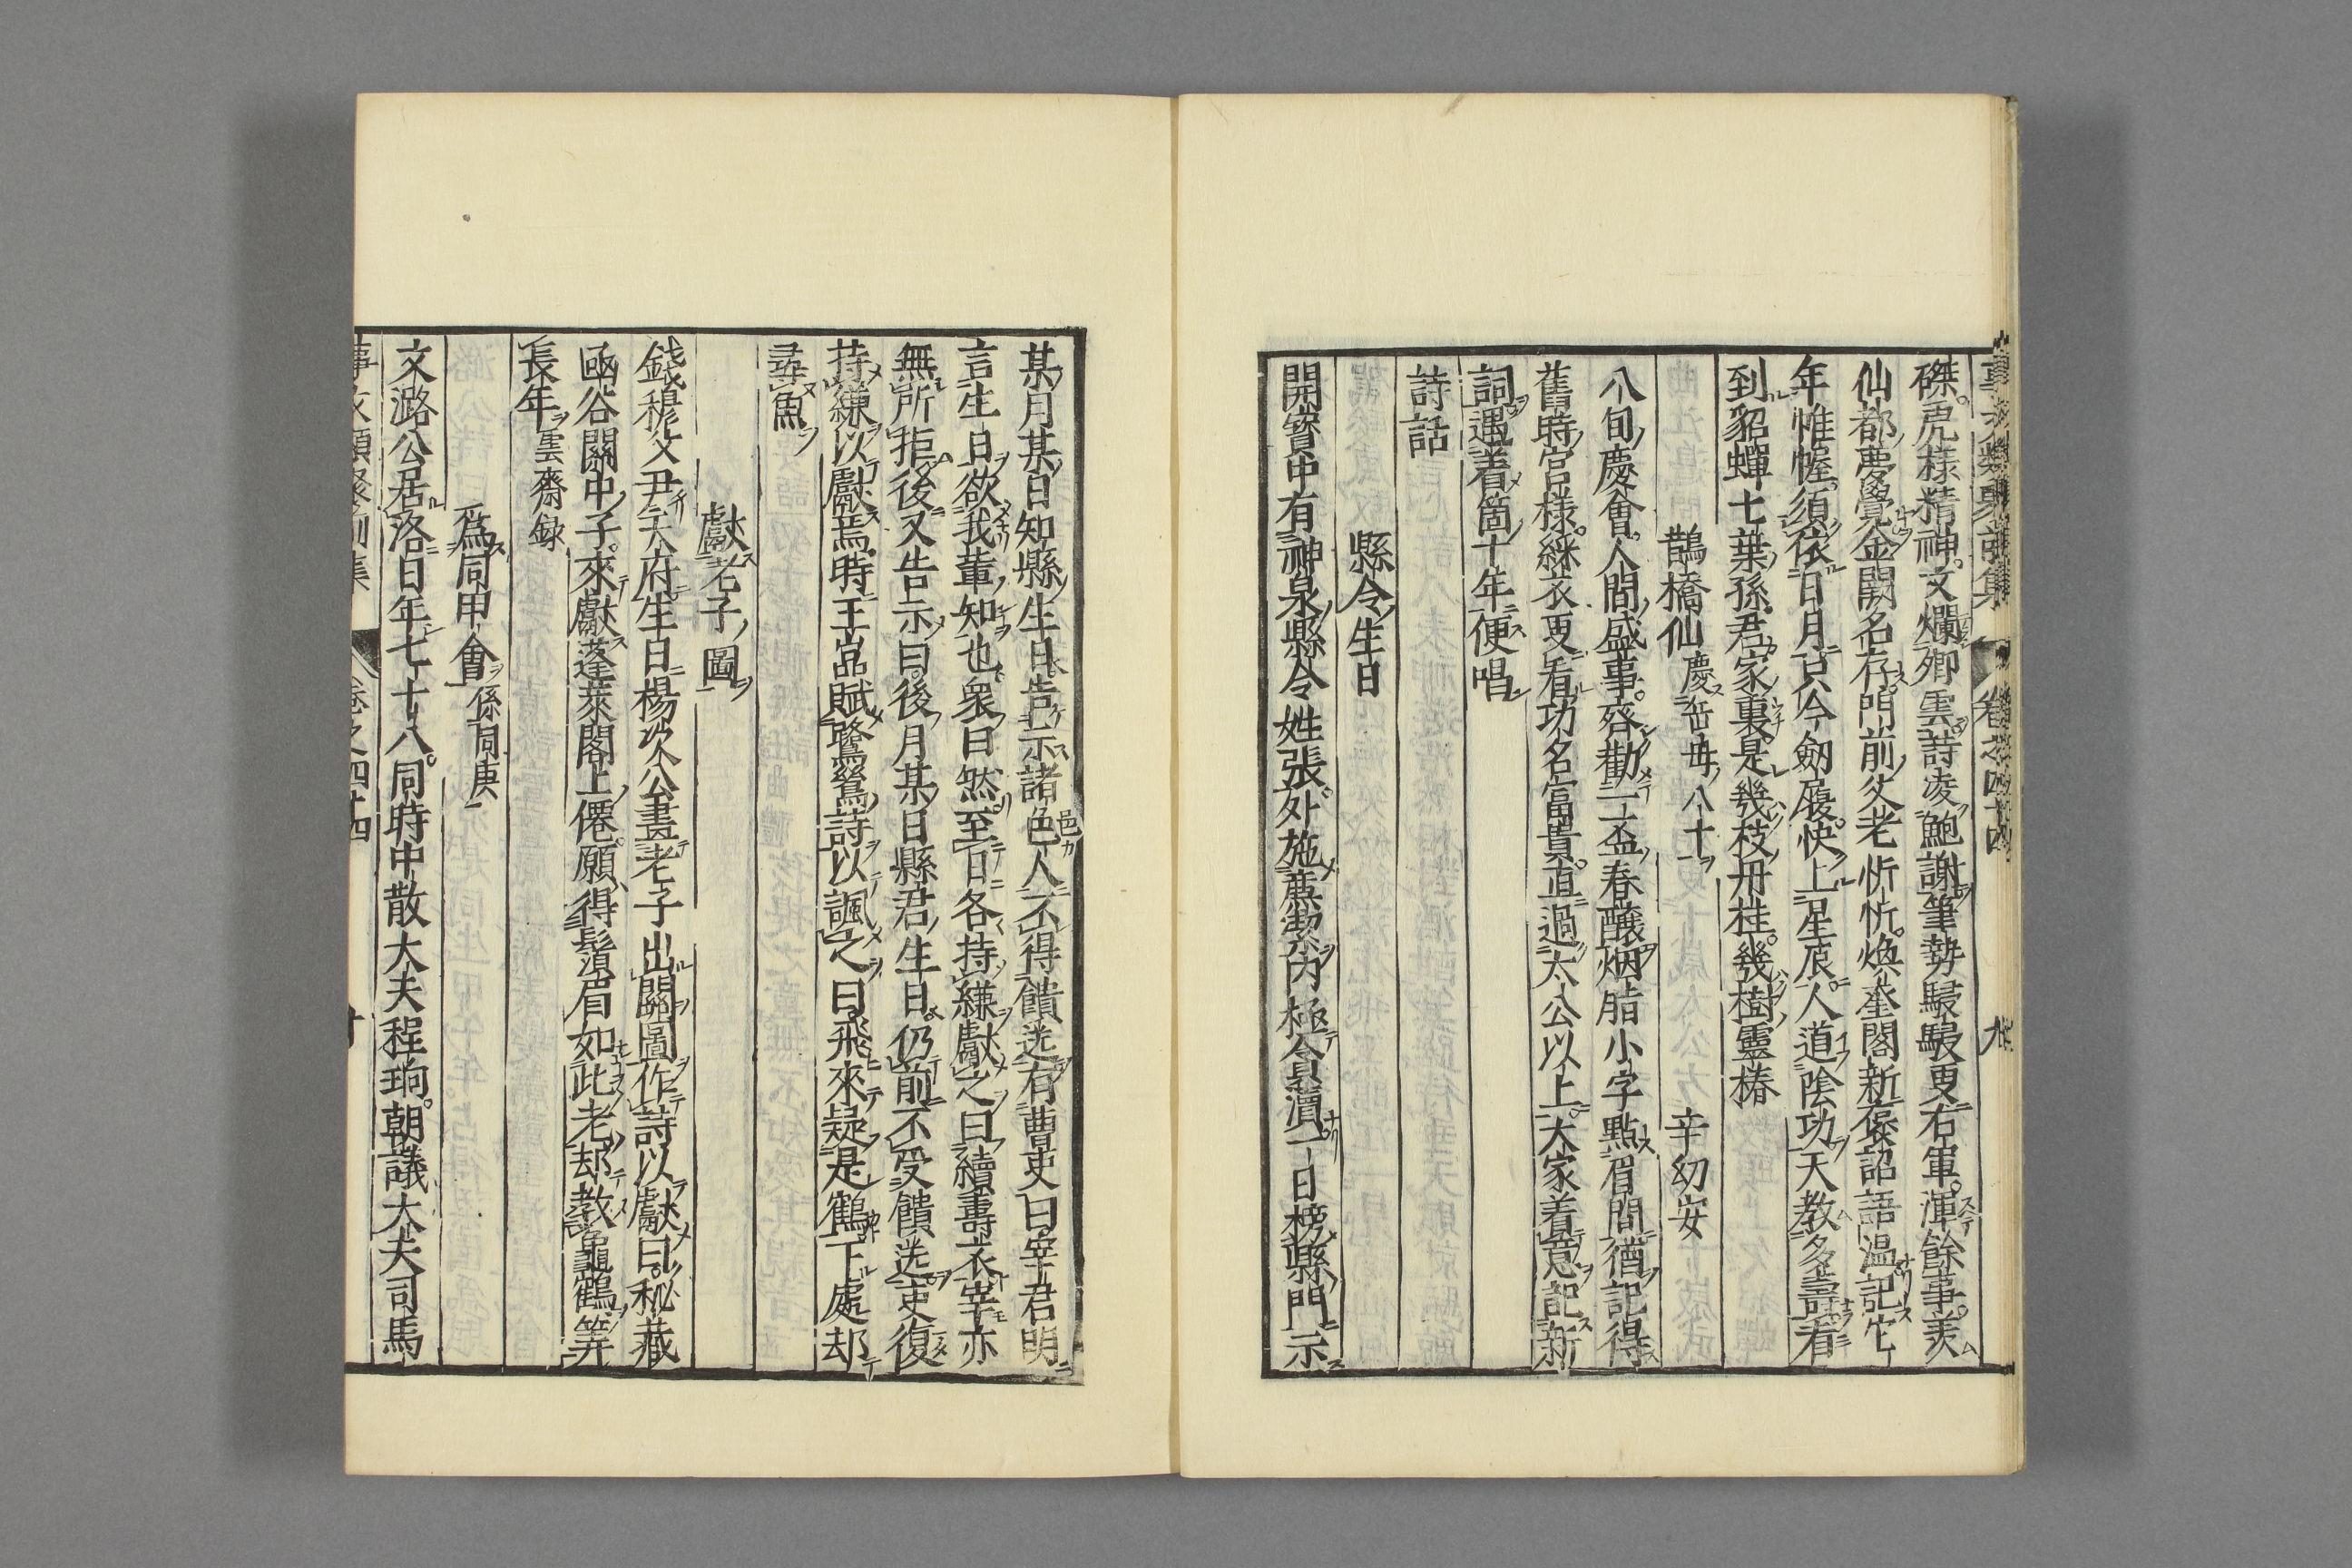 磔虎樣精神文爛卿雲詩凌鮑謝筆勢駸駸更右軍渾餘事羨
仙都夢覺金闕名存門前父老忻忻煥奎閣新褒詔語溫記它
年帷幄須依日月只今劒履快上星辰人道陰功天教多壽看
到貂蟬七葉孫君家裏是幾枝丹桂幾樹靈椿
鵲橋仙 慶岳母八十 辛幼安
八旬慶會人間盛事齊勸一盃春釀烟脂小字點眉間猶記得
舊時宮樣綵衣更看功名富貴直過太公以上大家着意記新
詞遇着箇十年便唱
詩話
縣令生日
開寶中有神泉縣令姓張外施廉潔內極貪瀆一日榜縣門示
某月某日知縣生日告示諸色人不得饋送有曹吏曰宰君明
言生日欲我輩知也衆曰然至日各持縑獻之曰續壽衣宰亦
無所拒後又告示曰後月某日縣君生日仍前不受饋送吏復
持縑以獻焉時王嵓賦鷺鷥詩以諷之曰飛來疑是鶴下處却
尋魚
獻老子圖
錢穆父尹天府生日楊次公畫老子出關圖作詩以獻曰秘藏
凾谷關中子來獻蓬萊閣上僊願得鬚眉如此老却教龜鶴筭
長年 雲齋録
爲同甲會 係同庚
文潞公居洛日年七十八同時中散大夫程珦朝議大夫司馬
事文類聚前集 卷之四十四